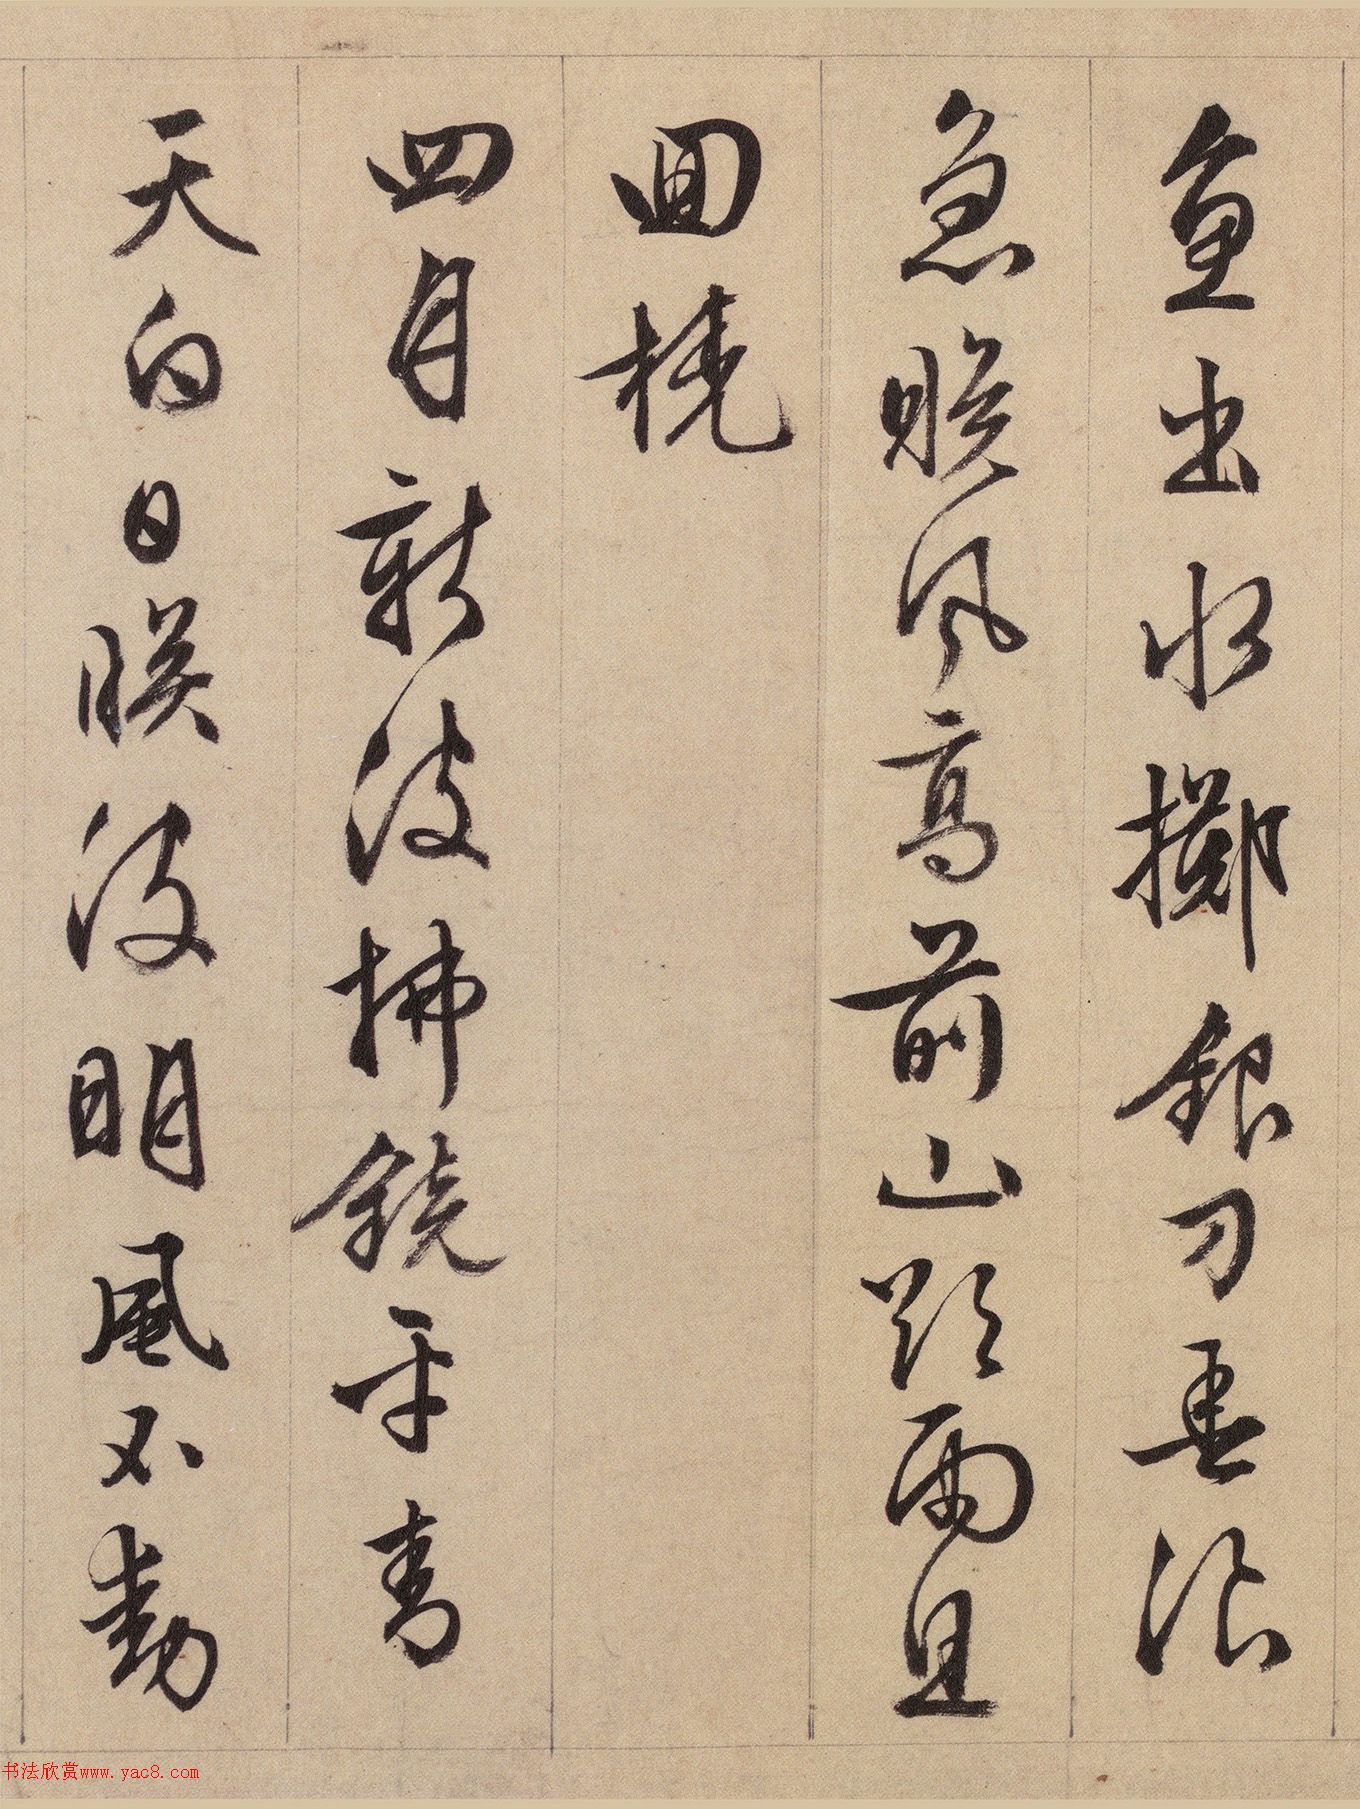 魚出水擲銀刀暮浪
急晚風高前山踏雨且
回橈
四月新波拂鏡平青
天白日映波明風不動
书法欣赏www.yac8.com